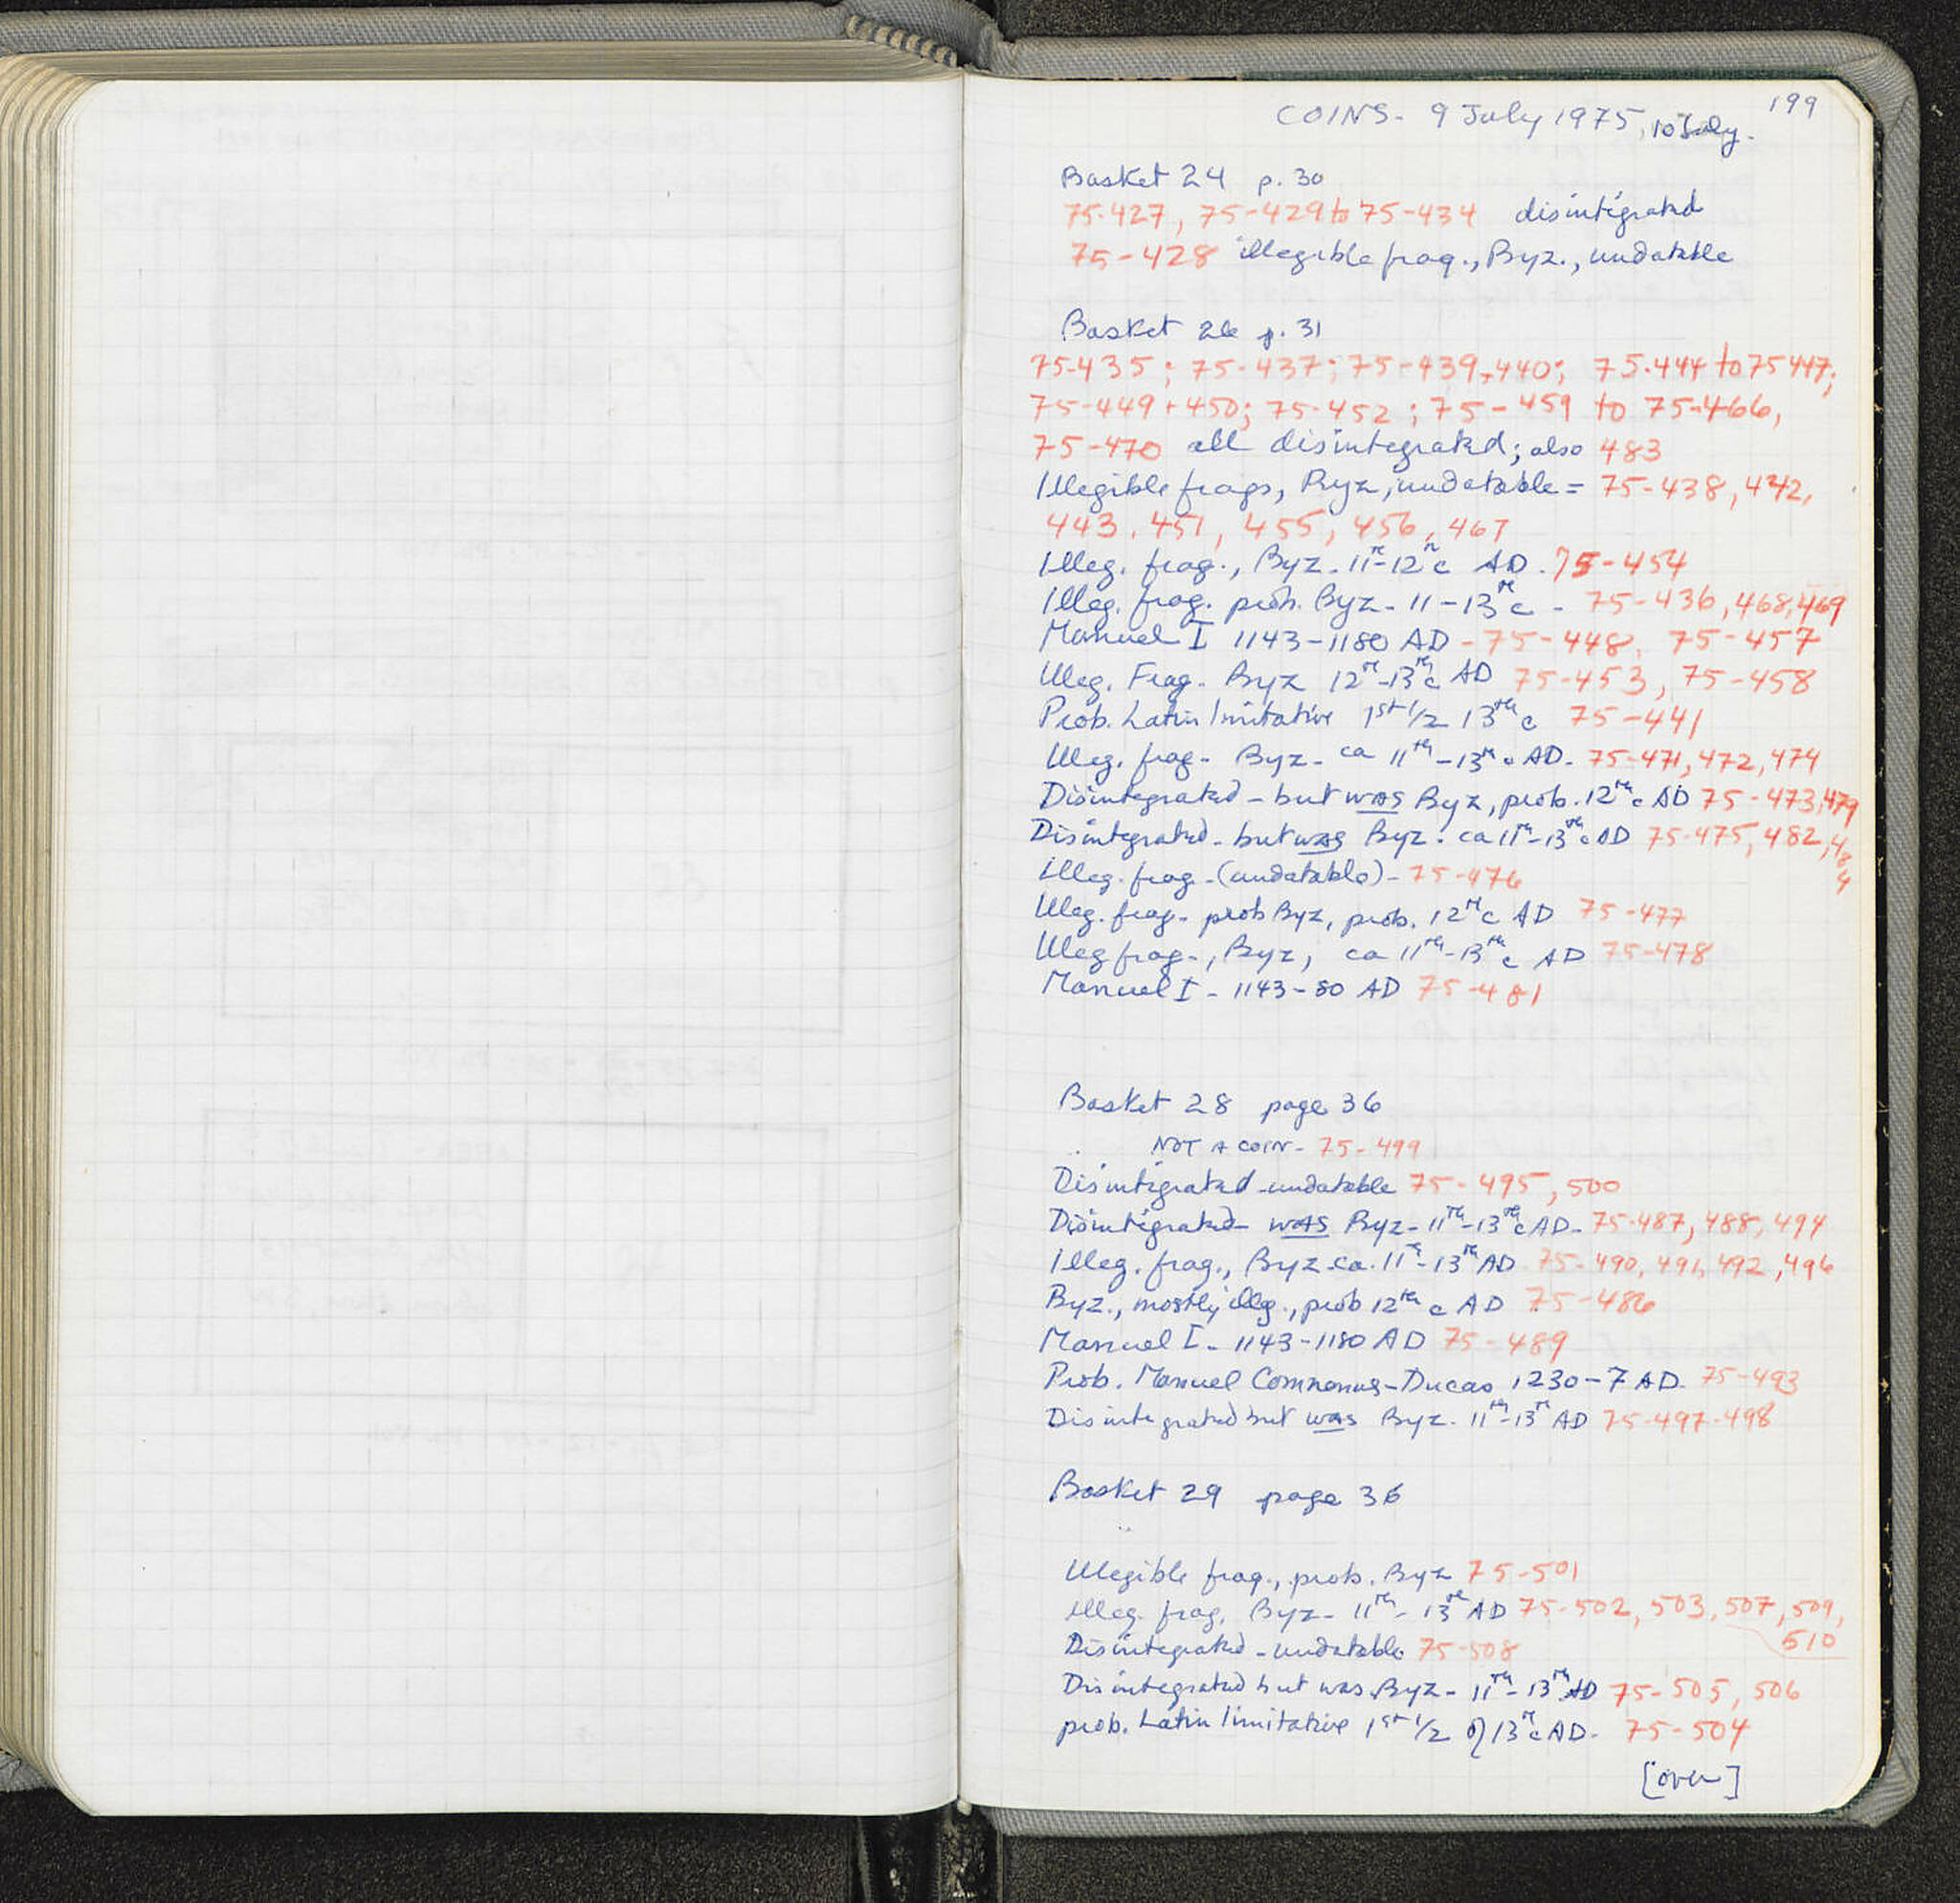 199
COINS - 9 July 1975, 10 July.
Basket 24 p. 30
75-427, 75-429 to 75-434 disintegrated
75-428 illegible frag., Byz., undatable
Basket 26 p. 31
75-435; 75-437; 75-439,440; 75-444 to 75447;
75-449+450; 75-452; 75-459 to 75-466,
75-470 all disintegrated; also 483
Illegible frags, Byz, undatable = 75-438, 442,
443, 451, 455, 456, 467
Illeg. frag., Byz. 11th-12th c AD. 75-454
Illeg. frag. prob. Byz. 11-13th c - 75-436, 468, 469
Manuel I 1143-1180 AD - 75-448, 75-457
Illeg. Frag. Byz 12th-13th c AD 75-453, 75-458
Prob. Latin Imitative 1st 1/2 13th c 75-441
Illeg. frag. Byz. ca 11th-13th c AD. 75-471, 472, 474
Disintegrated - but was Byz, prob. 12th c AD 75-473, 479
Disintegrated - but was Byz. ca 11th-13th c AD 75-475, 482, 484
Illeg. frag - (undatable) - 75-476
Illeg. frag. prob Byz, prob. 12th c AD 75-477
Illeg frag., Byz, ca 11th-13th c AD 75-478
Manuel I - 1143-80 AD 75-481
Basket 28 page 36
NOT A COIN - 75-499
Disintegrated - undatable 75-495, 500
Disintegrated - was Byz - 11th-13th c AD - 75-487, 488, 494
Illeg. frag., Byz ca. 11th-13th AD 75-490, 491, 492, 496
Byz., mostly illeg., prob 12th c AD 75-486
Manuel I - 1143-1180 AD 75-489
Prob. Manuel Comnenus-Ducas 1230-7 AD. 75-493
Disintegrated but was Byz. 11th-13th AD 75-497-498
Basket 29 page 36
Illegible frag., prob. Byz 75-501
Illeg. frag. Byz - 11th-13th AD 75-502, 503, 507, 509,
510
Disintegrated - undatable 75-508
Disintegrated but was Byz - 11th-13th AD 75-505, 506
prob. Latin Imitative 1st 1/2 of 13th c AD - 75-504
[over]